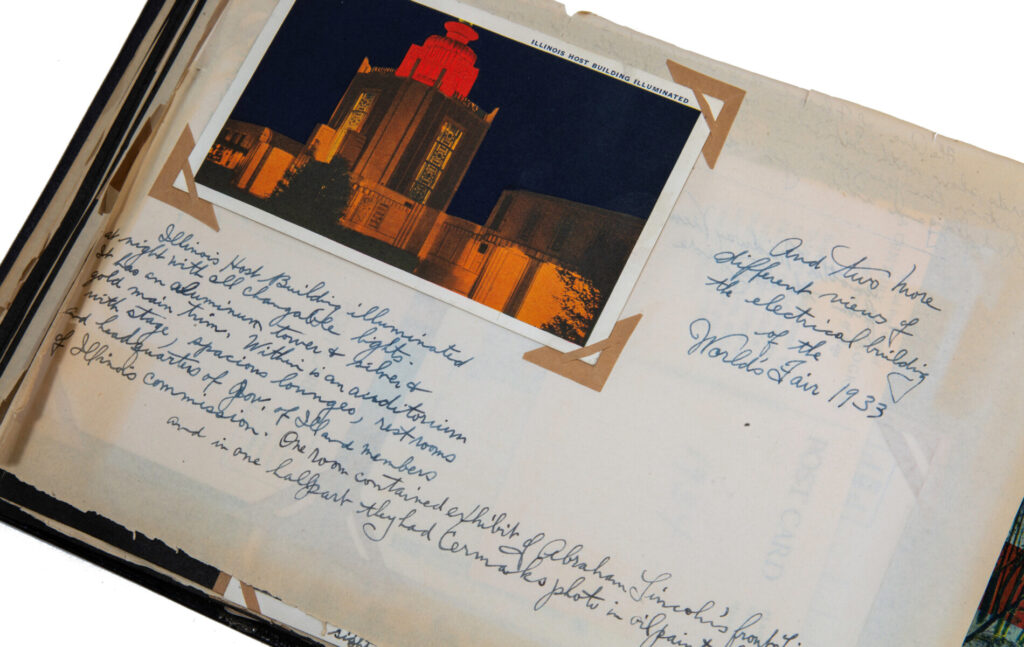 ILLINOIS HOST BUILDING ILLUMINATED
Illinois Host Building illuminated
at night with all changable lights.
It has an aluminum tower & silver &
gold main trim. Within is an auditorium
with stage, spacious lounges, restrooms
and headquarters of Gov. of Ill and members
of Illinois commission. One room contained exhibit of Abraham Lincoln's
and in one hall part they had Cermaks photo in oil paint &
And two more
different views of
the electrical building
of the
Worlds Fair 1933